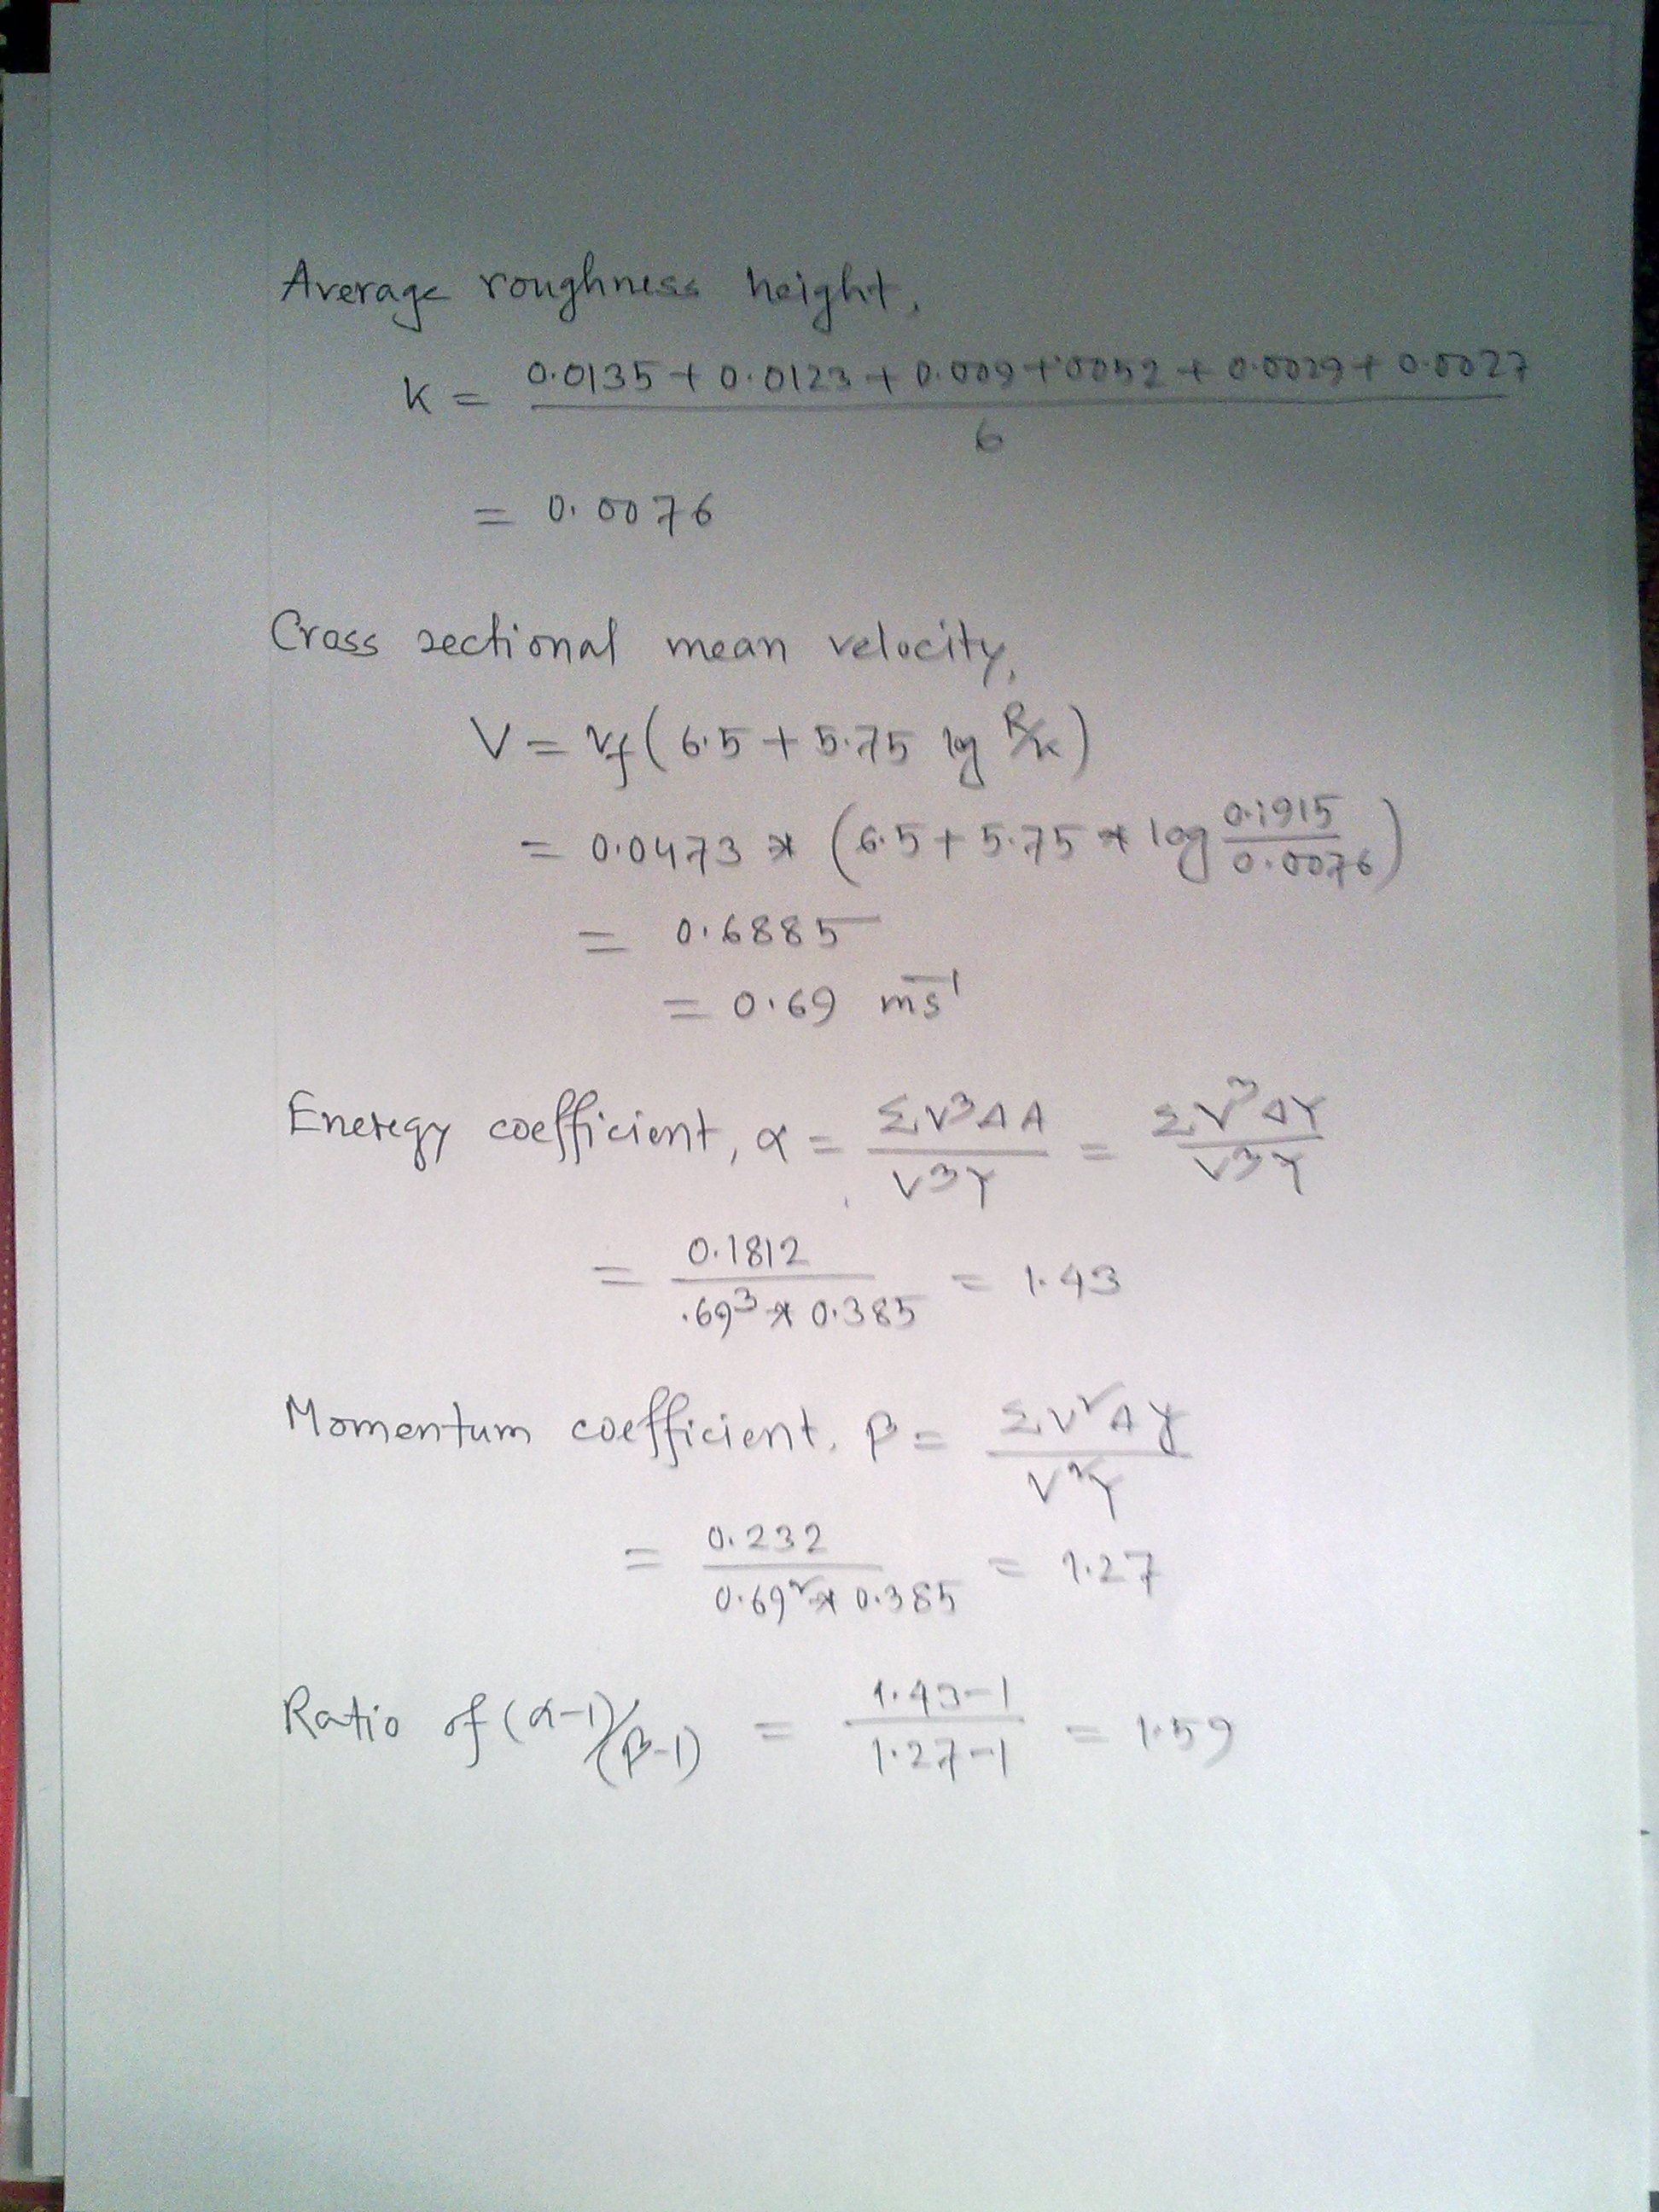 Average roughness height,
K = 0.0135 + 0.0123 + 0.009 + 0052 + 0.0029 + 0.0027 / 6
= 0.0076
Cross sectional mean velocity,
V = vf (6.5 + 5.75 log R/k)
= 0.0473 * (6.5 + 5.75 * log 0.1915 / 0.0076)
= 0.6885
= 0.69 ms⁻¹
Energy coefficient, α = ΣV³ΔA / V³Y = ΣV³ΔY / V³Y
= 0.1812 / .69³ * 0.385 = 1.43
Momentum coefficient, β = ΣV²Δy / V²Y
= 0.232 / 0.69² * 0.385 = 1.27
Ratio of (α-1)/(β-1) = 1.43-1 / 1.27-1 = 1.59